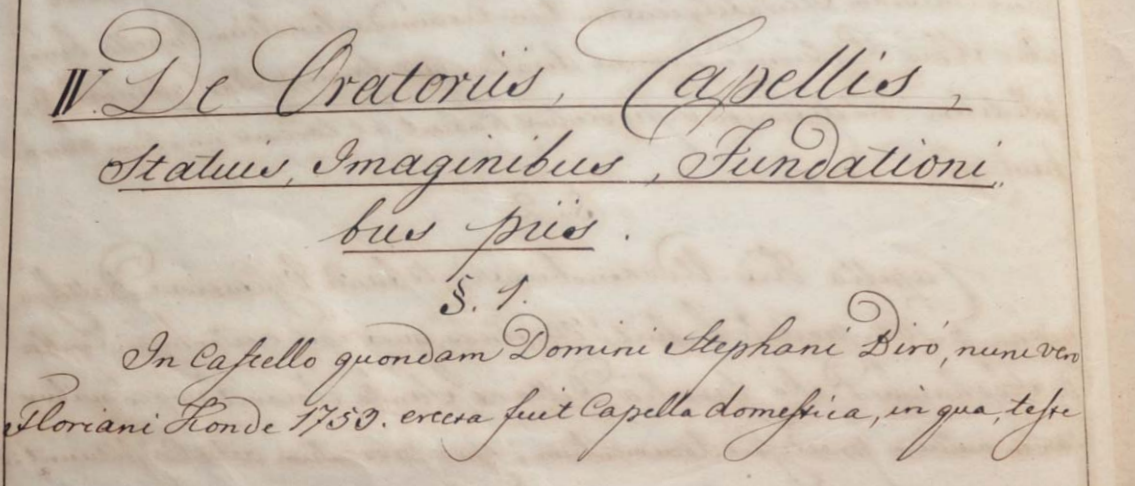 IV. De Oratoriis, Capellis,
Statuis, Imaginibus, Fundationi
bus piis.
§. 1.
In Castello quondam Domini Stephani Biró, nunc vero
Floriani Honde 1753. erecta fuit Capella domestica, in qua, teste